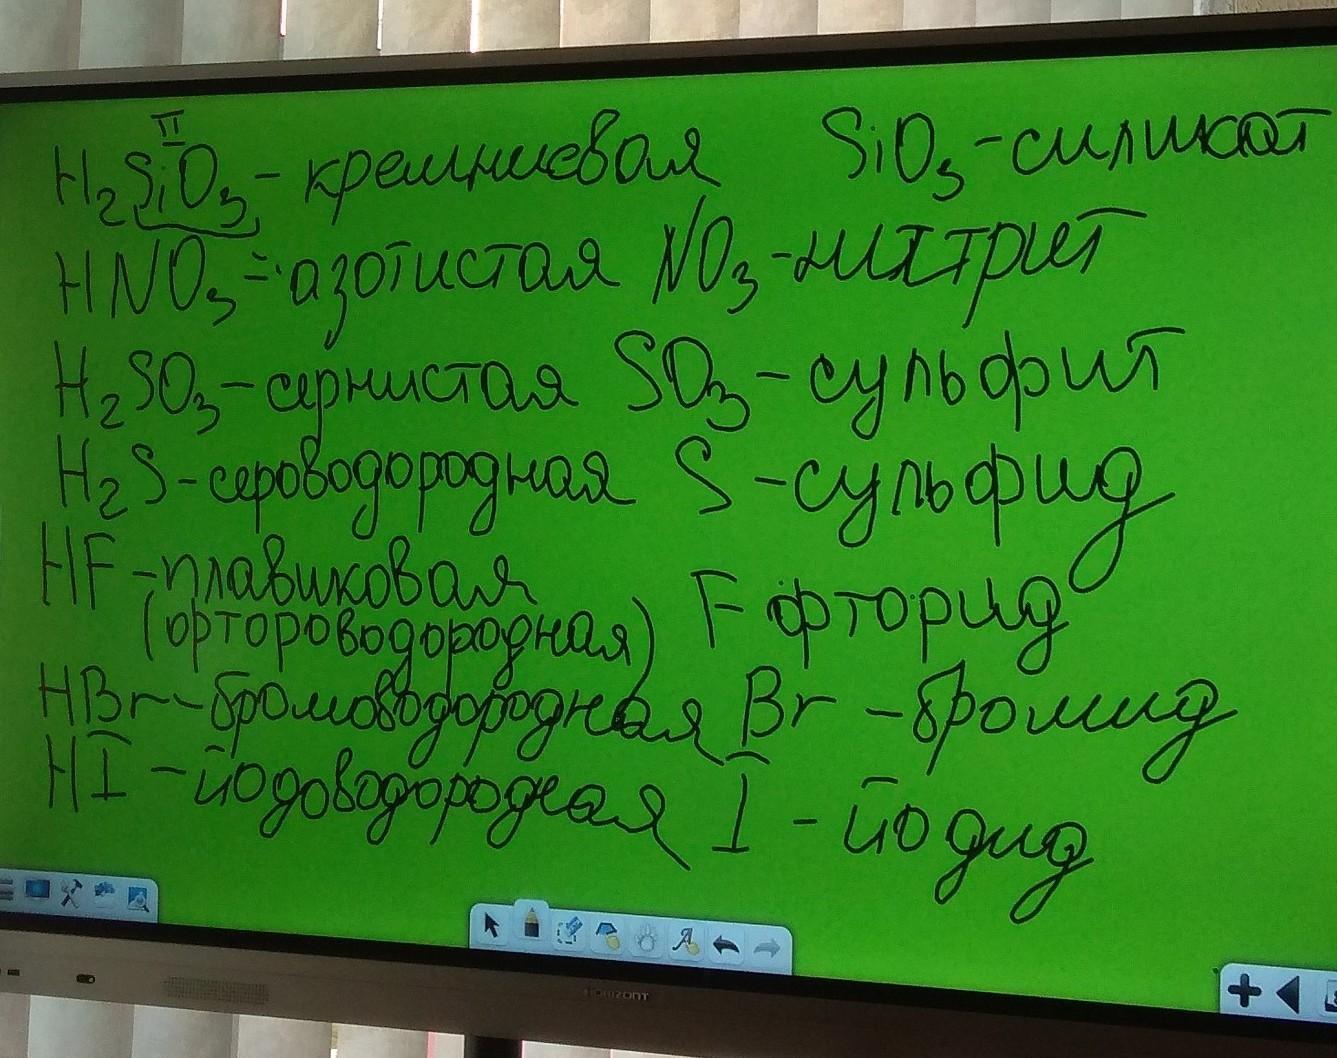 II
H₂SiO₃ - кремниевая SiO₃ - силикат
HNO₃ - азотистая NO₃ - нитрит
H₂SO₃ - сернистая SO₃ - сульфит
H₂S - сероводородная S - сульфид
HF - плавиковая
(фтороводородная) F фторид
HBr - бромоводородная Br - бромид
HI - йодоводородная I - йодид
HORIZONT